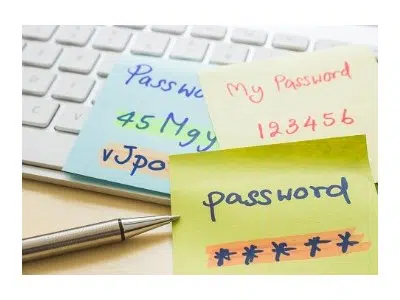 45 Mgy
vJpo
My Password
123456
password
*****